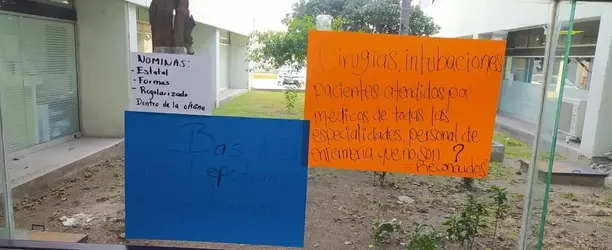 NOMINAS:
- Estatal
- Formas
- Regularizado
Dentro de la oficina
Cirugias, intubaciones
pacientes atendidos por
médicos de todas las
especialidades, personal de
enfermeria que no son ?
Reconocidos
Bas